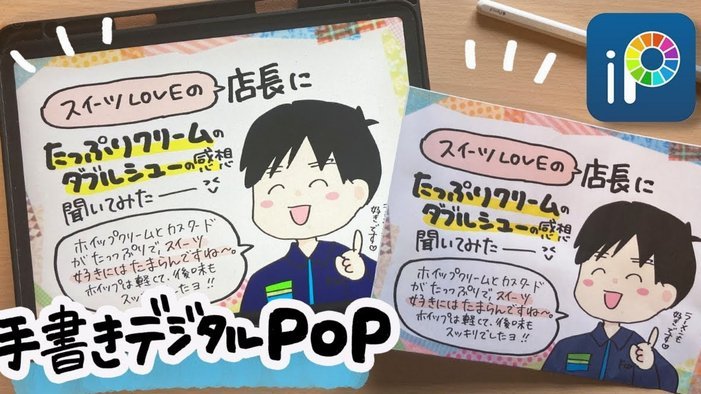 スイーツLOVEの
店長に
たっぷりクリームの
ダブルシューの感想
聞いてみた
ホイップクリームとカスタード
がたっぷりで、スイーツ
好きにはたまらんですね〜。
ホイップは軽くて、後味も
スッキリでしたヨ!!
手書きデジタルPOP
iP
スイーツLOVEの
店長に
たっぷりクリームの
ダブルシューの感想
聞いてみた
ホイップクリームとカスタード
がたっぷりで、スイーツ
好きにはたまらんですね〜。
ホイップは軽くて、後味も
スッキリでしたヨ!!